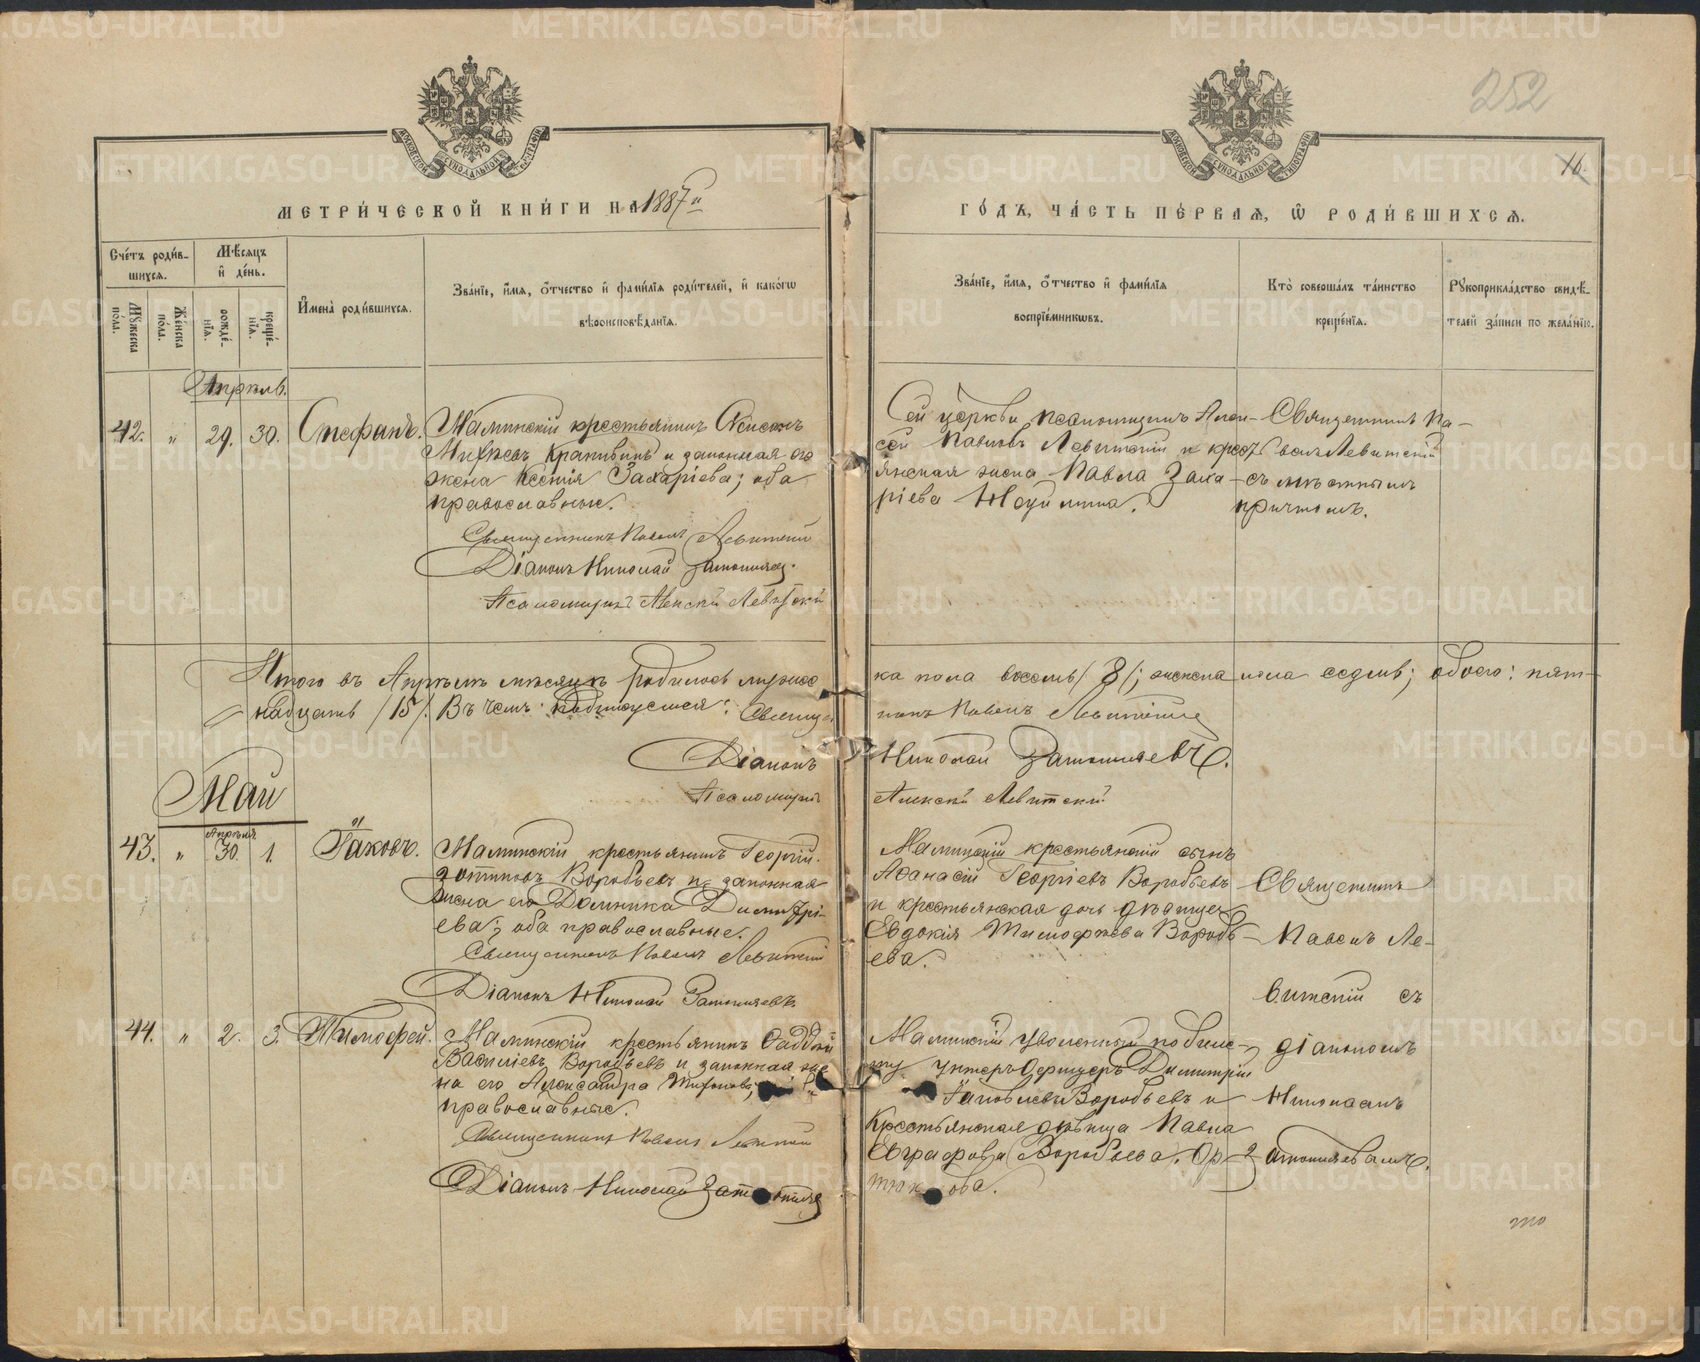 252
10.
МЕТРИ́ЧЕСКОЙ КНИ́ГИ НА 1887й
ГО́ДЪ, ЧА́СТЬ ПЕ́РВАЯ, Ѽ РОДИ́ВШИХСЯ.
Сче́тъ роди́в-
шихся.
Мѣ́сяцъ
и҆ де́нь.
Мꙋ́жеска
по́ла.
Же́нска
по́ла.
рожде́-
нїѧ.
креще́-
нїѧ.
И҆мена̀ роди́вшихся.
Зва́нїе, и҆́мя, ѻ҆́тчество и҆ фами́лїя роди́телей, и҆ како́гѡ
вѣроисповѣ́данїя.
Зва́нїе, и҆́мя, ѻ҆́тчество и҆ фами́лїя
воспрїе́мникѡвъ.
Кто̀ соверша́лъ та́инство
креще́нїя.
Рꙋкоприкла́дство свидѣ́-
телей за́писи по жела́нїю.
Апрѣль.
42. " 29. 30. Стефанъ.
Маминскій крестьянинъ
Михѣевъ Крапивинъ и законная его
жена Ксенія Захаріева; оба
православные.
Священникъ Павелъ Левитскій
Діаконъ Николай
Псаломщикъ Алексій Левитскій
Сей церкви псаломщикъ Алек-
сей Павловъ Левитскій и крест
янская жена Павла Заха-
ріева
Священникъ Па-
велъ Левитскій
съ мѣстнымъ
причтомъ.
Итого въ Апрѣлѣ мѣсяцѣ родилось мужес
ка пола восемь /8/; женска пола седмь; обоего: пят-
надцать /15/. Въ чемъ подписуемся: Священ
никъ Павелъ Левитскій
Діаконъ Николай
Псаломщикъ Алексій Левитскій
Май
43. " Апрѣля 30. 1. Іаковъ.
Маминскій крестьянинъ Георгій
Воробьевъ и законная
жена его Домника Димитрі-
ева; оба православные.
Священникъ Павелъ Левитскій
Діаконъ Николай
Маминскій крестьянскій сынъ
Афанасій Георгіевъ Воробьевъ
и крестьянская дочь дѣвица
Евдокія Тимофеева Воробь-
ева.
Священникъ
Павелъ Ле-
витскій съ
44. " 2. 3. Тимофей.
Маминскій крестьянинъ Фаддей
Василіевъ Воробьевъ и законная же
на его Александра
православные.
Священникъ Павелъ Левитскій
Діаконъ Николай
Маминскій уволенный по биле-
ту унтеръ-офицеръ Димитрій
Іаковлевъ Воробьевъ и
крестьянская дѣвица Павла
Евграфова Воробьева.
діакономъ
Николаемъ